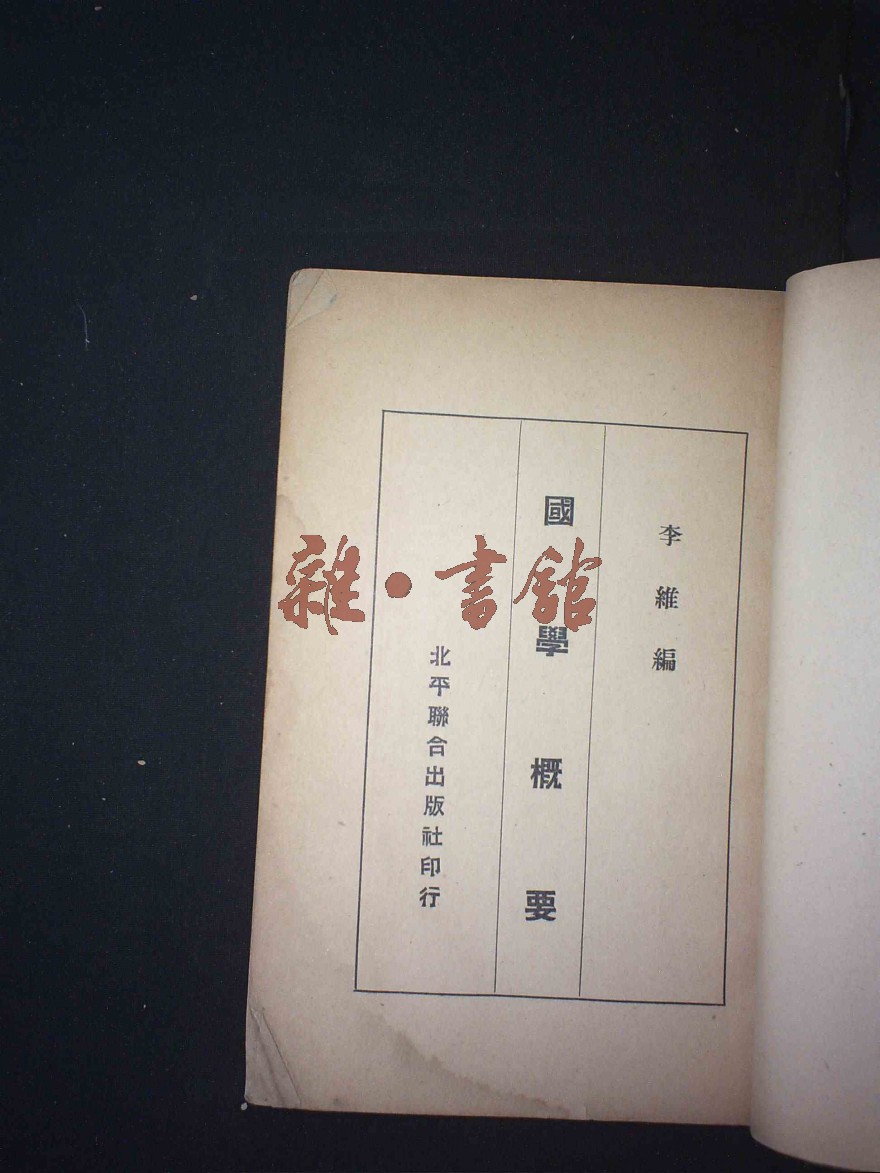 李維編
國學概要
北平聯合出版社印行
雜·書舘